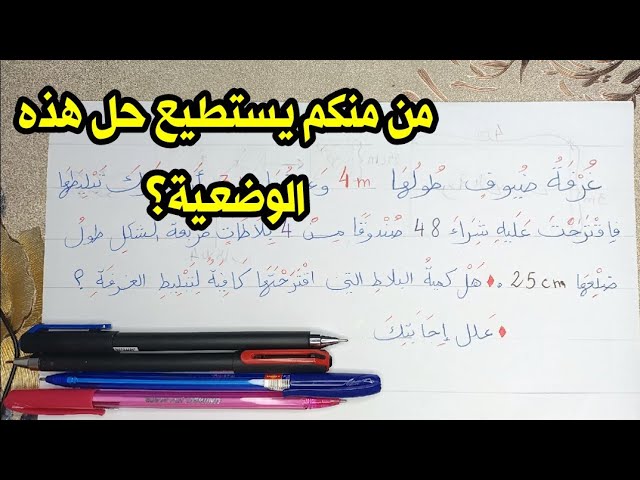 من منكم يستطيع حل هذه
الوضعية؟
غُرْفَةُ ضُيُوفٍ طُولُهَا 4m تَبْلِيطَهَا
فَاقْتَرَحْتَ عَلَيْهِ شِرَاءَ 48 صُنْدُوقًا مِنْ 4 بَلَاطَاتٍ مُرَبَّعَةِ الشَّكْلِ طُولُ
ضِلْعِهَا 25cm . هَلْ كَمِيَّةُ البلاطِ التي اقْتَرَحْتَهَا كَافِيَةٌ لِتَبْلِيطِ الغرفَةِ ؟
عَلل إِجَابَتِكَ